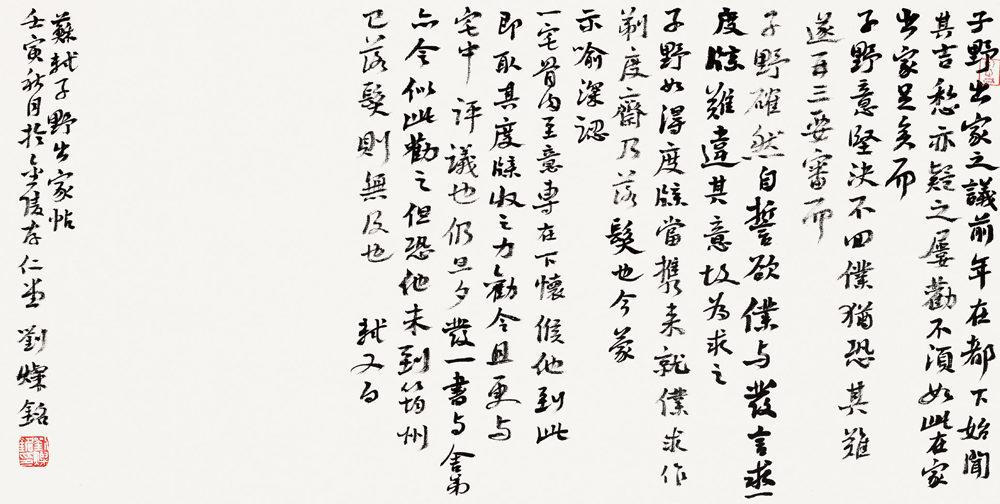 子野出家之議前年在都下始聞
其吉愁亦疑之屢勸不須如此在家
出家足矣而
子野意堅決不回僕猶恐其難
遂再三要審而
子野確然自誓欲僕与發言求一
度牒難違其意故為求之
子野如得度牒當攜来就僕求作
剃度齋乃落髮也今蒙
示喻深認
一宅骨肉至意專在下懷候他到此
即取其度牒收之力勸令且更与
宅中評議也仍旦夕發一書与舍弟
亦令似此勸之但恐他未到筠州
已落髮則無及也 軾又白
蘇軾子野出家帖
壬寅秋月於金陵存仁堂 劉燦銘